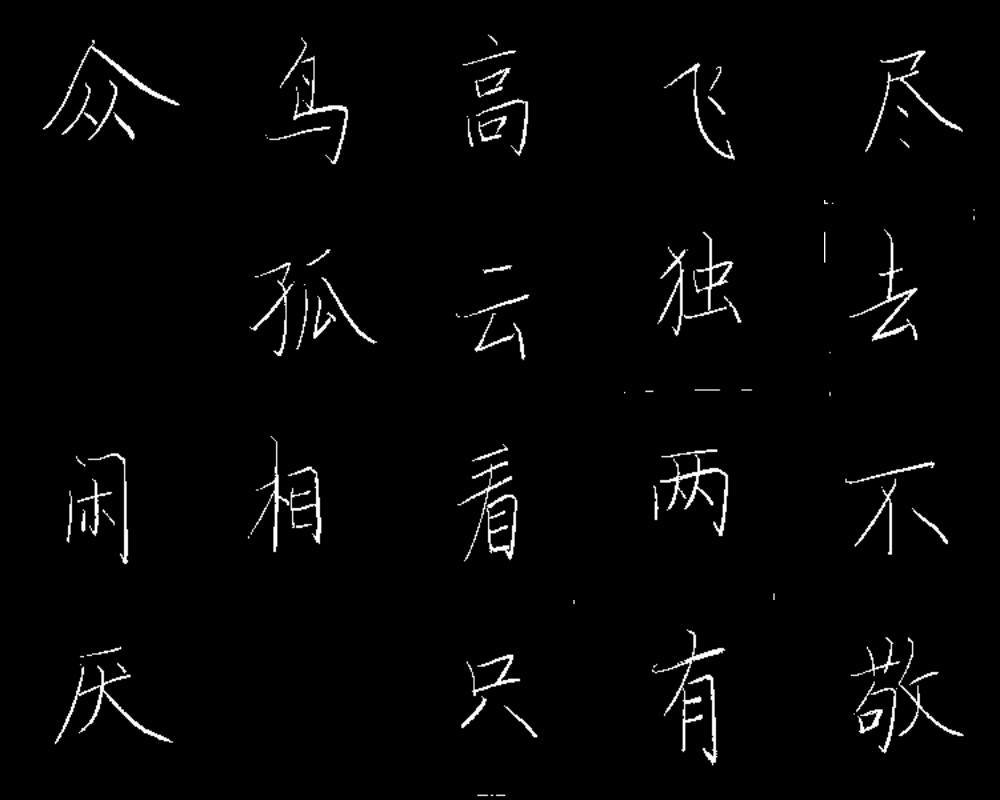 众鸟高飞尽
孤云独去
闲相看两不
厌只有敬